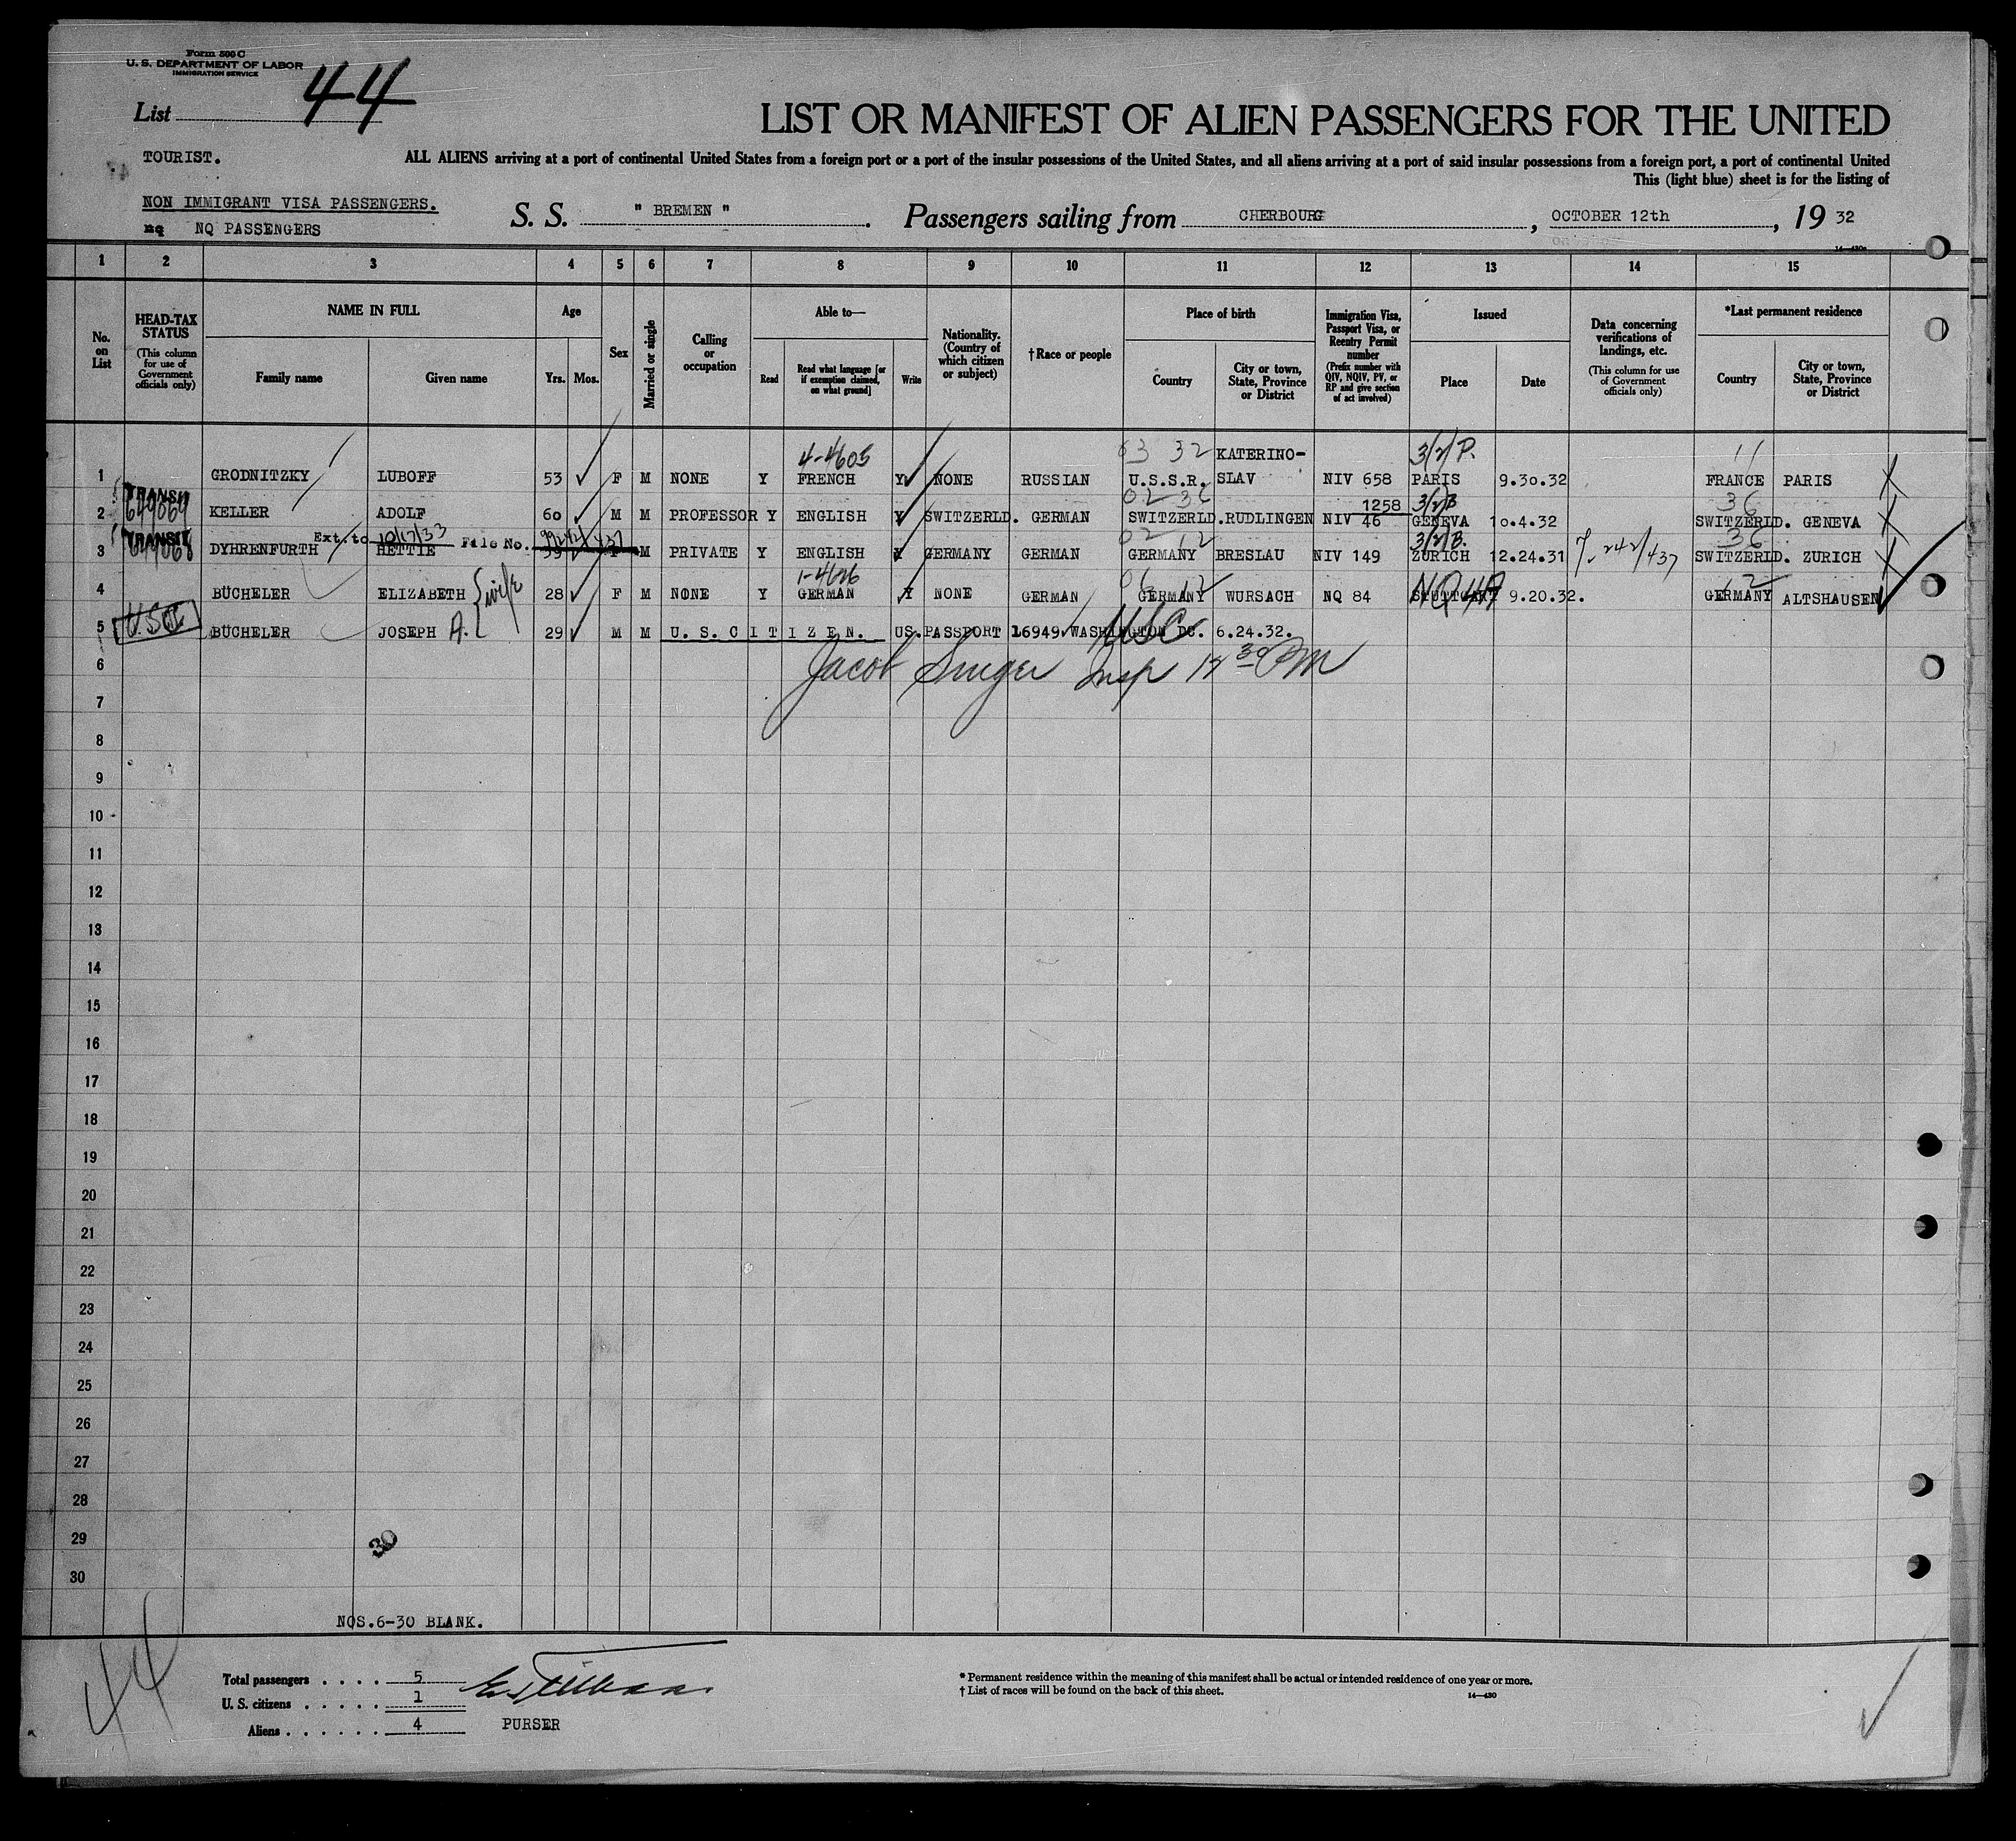 Form 500 C
U. S. DEPARTMENT OF LABOR
IMMIGRATION SERVICE
List 44
LIST OR MANIFEST OF ALIEN PASSENGERS FOR THE UNITED
TOURIST.
ALL ALIENS arriving at a port of continental United States from a foreign port or a port of the insular possessions of the United States, and all aliens arriving at a port of said insular possessions from a foreign port, a port of continental United
This (light blue) sheet is for the listing of
NON IMMIGRANT VISA PASSENGERS.
nq NQ PASSENGERS
S. S. " BREMEN ". Passengers sailing from CHERBOURG, OCTOBER 12th, 19 32
1 2 3 4 5 6 7 8 9 10 11 12 13 14 15
No. on List
HEAD-TAX STATUS (This column for use of Government officials only)
NAME IN FULL
Family name Given name
Age
Yrs. Mos.
Sex
Married or single
Calling or occupation
Able to—
Read Read what language [or if exemption claimed, on what ground] Write
Nationality. (Country of which citizen or subject)
†Race or people
Place of birth
Country City or town, State, Province or District
Immigration Visa, Passport Visa, or Reentry Permit number (Prefix number with QIV, NQIV, PV, or RP and give section of act involved)
Issued
Place Date
Data concerning verifications of landings, etc. (This column for use of Government officials only)
*Last permanent residence
Country City or town, State, Province or District
4-4605 63 32 KATERINO- 3/2/P. 11
1 GRODNITZKY LUBOFF 53 F M NONE Y FRENCH Y NONE RUSSIAN U.S.S.R. SLAV NIV 658 PARIS 9.30.32 FRANCE PARIS
TRANSIT 649069 02 36 1258 3/2/B 36
2 KELLER ADOLF 60 M M PROFESSOR Y ENGLISH Y SWITZERLD. GERMAN SWITZERLD. RUDLINGEN NIV 46 GENEVA 10.4.32 SWITZERLD. GENEVA
TRANSIT Ext. to 10/17/33 File No. 02 12 3/2/B. 36
3 DYHRENFURTH HETTIE 39 F M PRIVATE Y ENGLISH Y GERMANY GERMAN GERMANY BRESLAU NIV 149 ZURICH 12.24.31 SWITZERLD. ZURICH
1-4626 06 12 12
4 BÜCHELER ELIZABETH wife 28 F M NONE Y GERMAN Y NONE GERMAN GERMANY WURSACH NQ 84 STUTTGART 9.20.32. GERMANY ALTSHAUSEN
USC
5 BÜCHELER JOSEPH A. 29 M M U. S. C I T I Z E N. US. PASSPORT 16949 WASHINGTON DC. 6.24.32.
USC
Jacob Singer Insp 12 30 PM
6
7
8
9
10
11
12
13
14
15
16
17
18
19
20
21
22
23
24
25
26
27
28
29
30
30
NOS.6-30 BLANK.
44
Total passengers . . . . 5
U. S. citizens . . . . . 1
Aliens . . . . . . 4
PURSER
* Permanent residence within the meaning of this manifest shall be actual or intended residence of one year or more.
† List of races will be found on the back of this sheet.
14—430